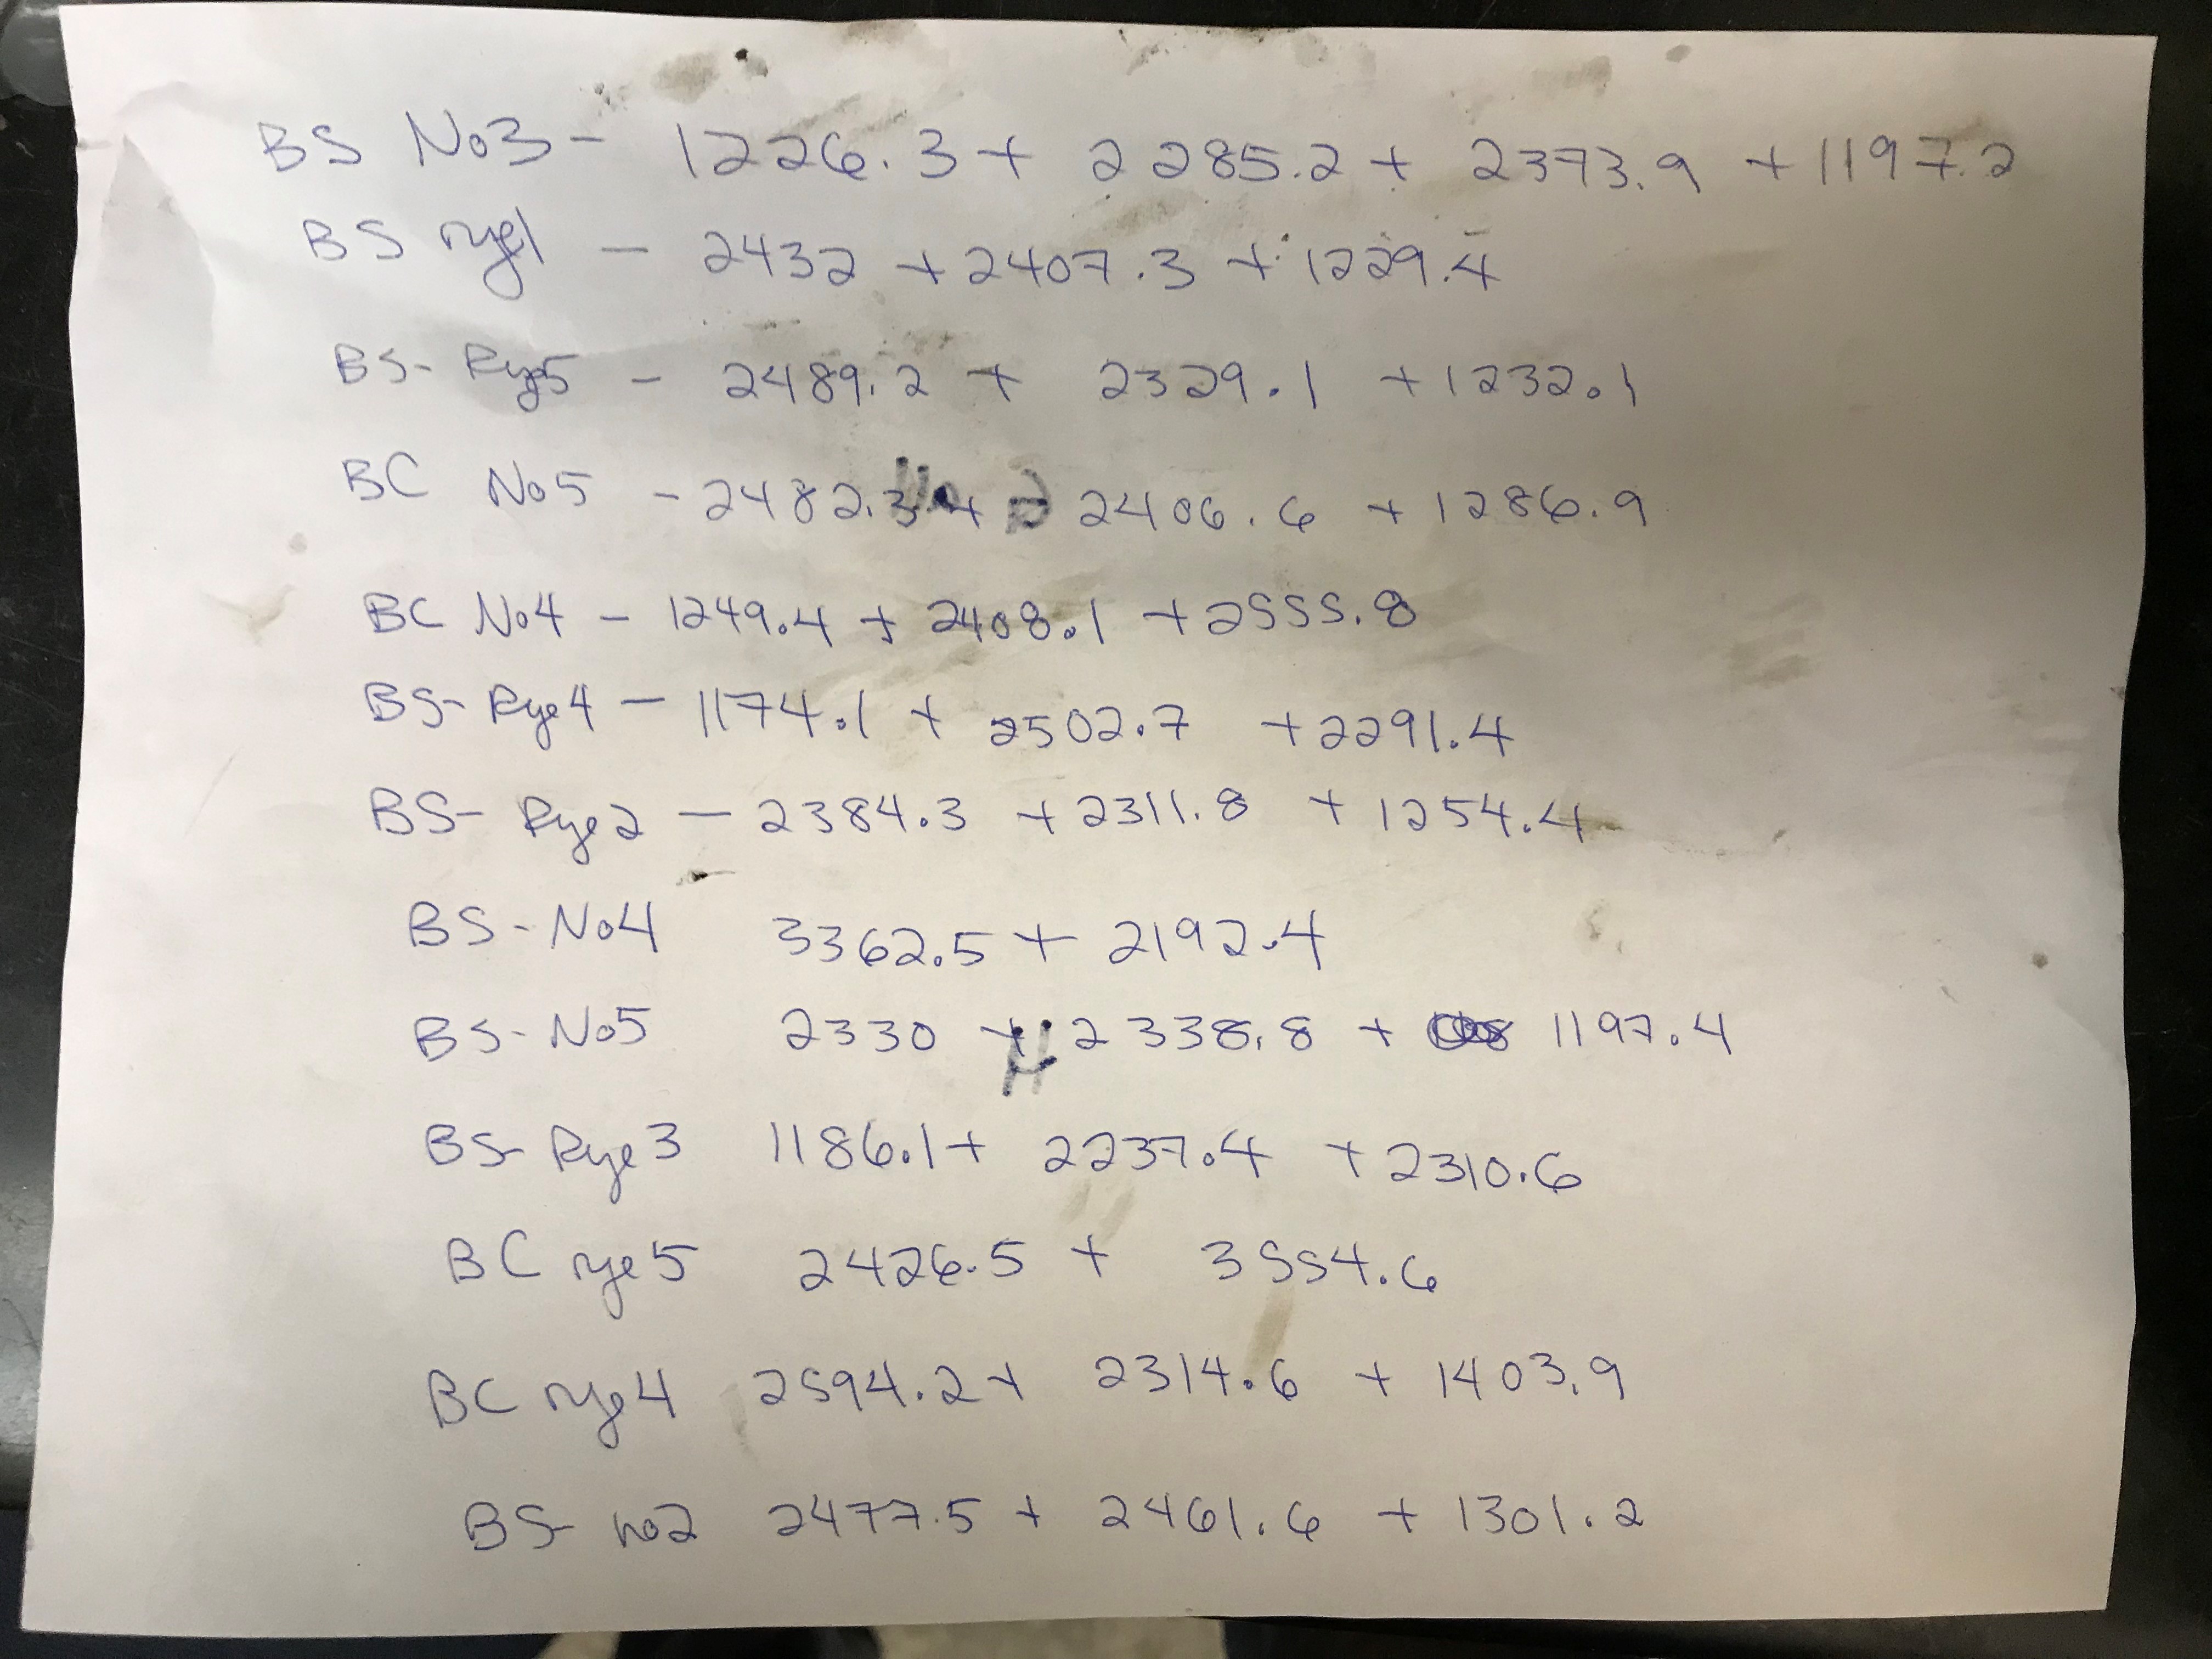 BS No3 - 1226.3 + 2285.2 + 2373.9 + 1197.2
BS rye1 - 2432 + 2407.3 + 1229.4
BS- Rye5 - 2489.2 + 2329.1 + 1232.1
BC No5 - 2482.3 + 2406.6 + 1286.9
BC No4 - 1249.4 + 2408.1 + 2555.8
BS- Rye4 - 1174.1 + 2502.7 + 2291.4
BS- Rye2 - 2384.3 + 2311.8 + 1254.4
BS-No4 3362.5 + 2192.4
BS-No5 2330 + 2338.8 + 1197.4
BS- Rye3 1186.1 + 2237.4 + 2310.6
BC rye5 2426.5 + 3554.6
BC rye4 2594.2 + 2314.6 + 1403.9
BS- no2 2477.5 + 2461.6 + 1301.2